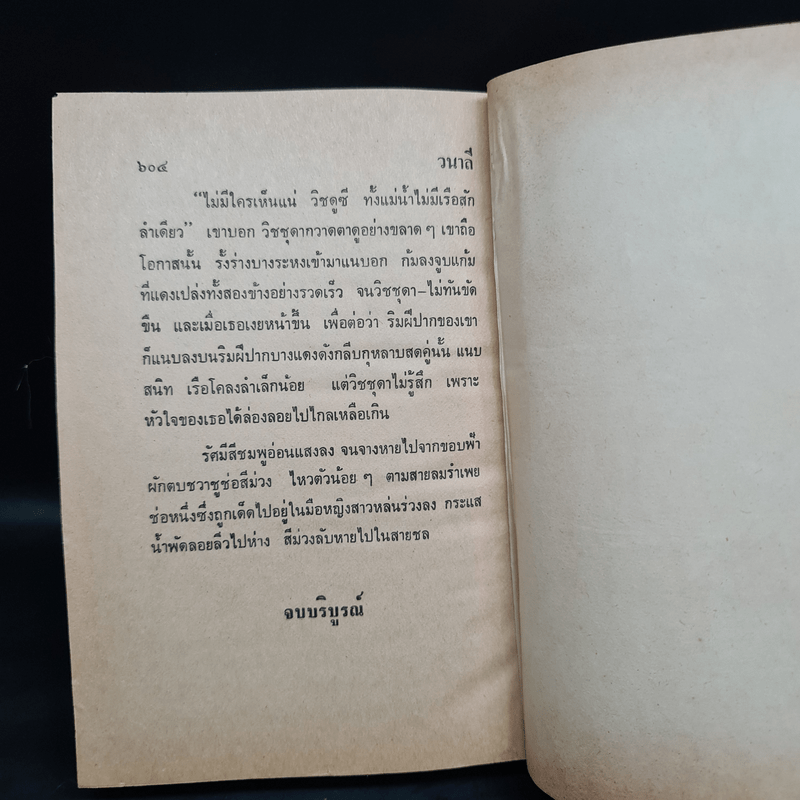 ๖๐๔ วนาลี
"ไม่มีใครเห็นแน่ วิชดูซี ทั้งแม่น้ำไม่มีเรือสัก
ลำเดียว" เขาบอก วิชชุดากวาดตาดูอย่างขลาด ๆ เขาถือ
โอกาสนั้น รั้งร่างบางระหงเข้ามาแนบอก ก้มลงจูบแก้ม
ที่แดงเปล่งทั้งสองข้างอย่างรวดเร็ว จนวิชชุดา-ไม่ทันขัด
ขืน และเมื่อเธอเงยหน้าขึ้น เพื่อต่อว่า ริมฝีปากของเขา
ก็แนบลงบนริมฝีปากบางแดงดังกลีบกุหลาบสดคู่นั้น แนบ
สนิท เรือโคลงลำเล็กน้อย แต่วิชชุดาไม่รู้สึก เพราะ
หัวใจของเธอได้ล่องลอยไปไกลเหลือเกิน
รัศมีสีชมพูอ่อนแสงลง จนจางหายไปจากขอบฟ้า
ผักตบชวาชูช่อสีม่วง ไหวตัวน้อย ๆ ตามสายลมรำเพย
ช่อหนึ่งซึ่งถูกเด็ดไปอยู่ในมือหญิงสาวหล่นร่วงลง กระแส
น้ำพัดลอยลิ่วไปห่าง สีม่วงลับหายไปในสายชล
จบบริบูรณ์